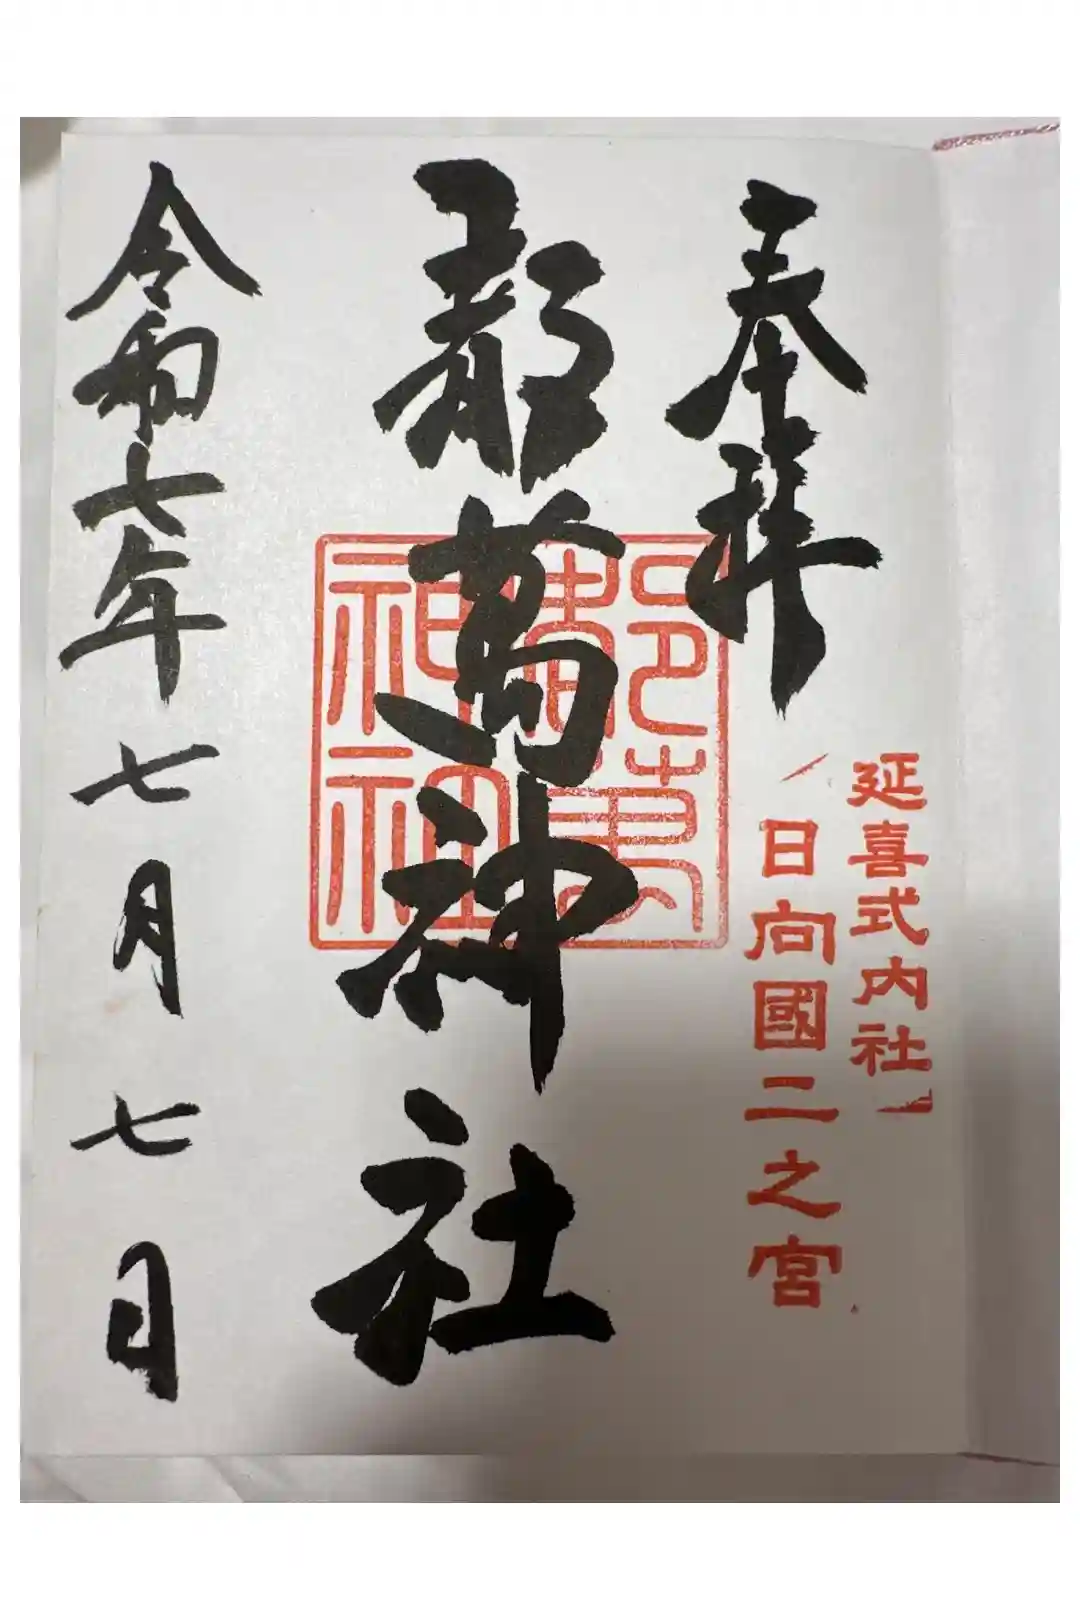 奉拝
延喜式内社
日向國二之宮
都萬神社
都萬
神社
令和七年七月七日